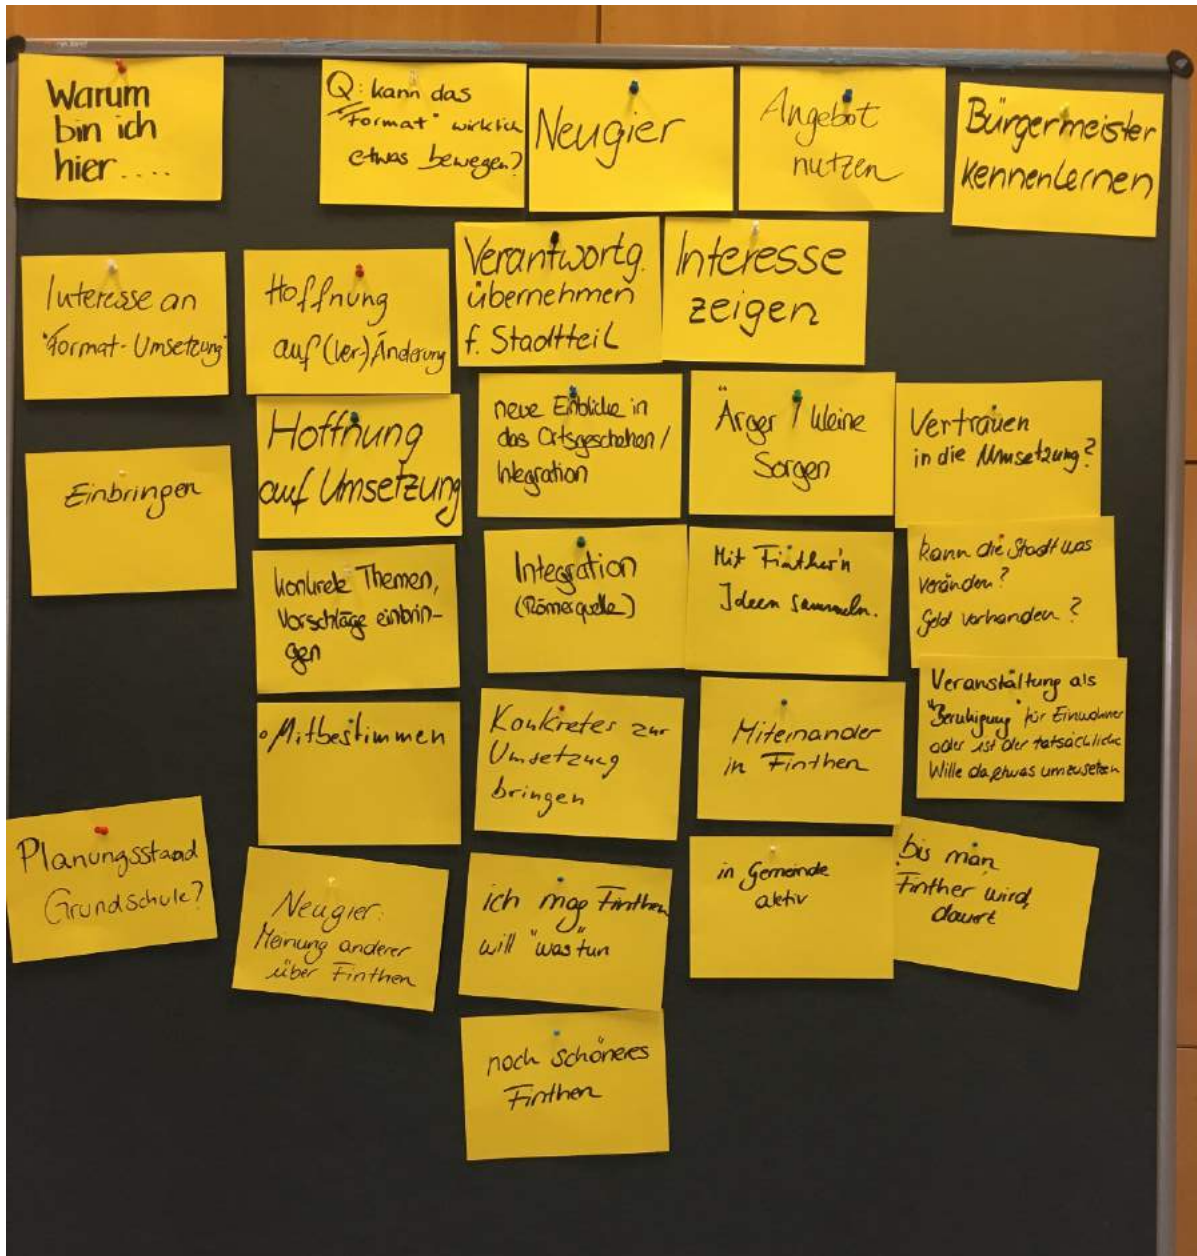 Warum
bin ich
hier....
Q: kann das
"Format" wirklich
etwas bewegen?
Neugier
Angebot
nutzen
Bürgermeister
kennenlernen
Interesse an
"Format-Umsetzung"
Hoffnung
auf (Ver-)Änderung
Verantwortg.
übernehmen
f. Stadtteil
Interesse
zeigen
Einbringen
Hoffnung
auf Umsetzung
neue Einblicke in
das Ortsgeschehen /
Integration
Ärger / kleine
Sorgen
Vertrauen
in die Umsetzung?
konkrete Themen,
Vorschläge einbrin-
gen
Integration
(Römerquelle)
Mit Finther'n
Ideen sammeln.
kann die Stadt was
verändern?
Geld vorhanden?
Mitbestimmen
Konkretes zur
Umsetzung
bringen
Miteinander
in Finthen
Veranstaltung als
"Beruhigung" für Einwohner
oder ist der tatsächliche
Wille da etwas umzusetzen
Planungsstand
Grundschule?
Neugier:
Meinung anderer
über Finthen
ich mag Finthen
will "was" tun
in Gemeinde
aktiv
bis man
Finther wird,
dauert
noch schöneres
Finthen